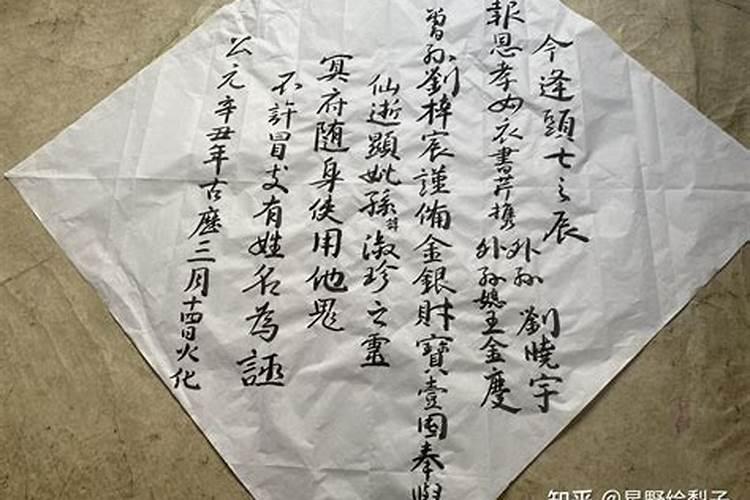 今逢頭七之辰
報恩孝女衣書芹携
外孙 劉曉宇
外孙媳王金度
曾孙劉梓宸謹俻金銀財寶壹因奉與
仙逝顯妣孫諱淑珍之靈
冥府随身使用他鬼
不許冒支有姓名為証
公元辛丑年古曆三月十四日火化
知乎 @星野给梨子